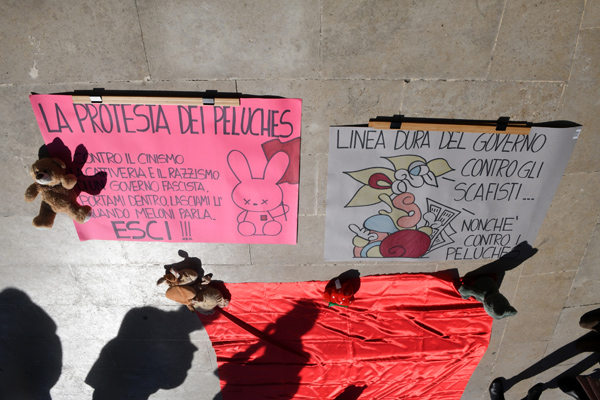 LA PROTESTA DEI PELUCHES
CONTRO IL CINISMO
CATTIVERIA E IL RAZZISMO
GOVERNO FASCISTA.
PORTAMI DENTRO, LASCIAMI LI'
QUANDO MELONI PARLA.
ESCI !!!
LINEA DURA DEL GOVERNO
CONTRO GLI
SCAFISTI...
NONCHE'
CONTRO I
PELUCHES